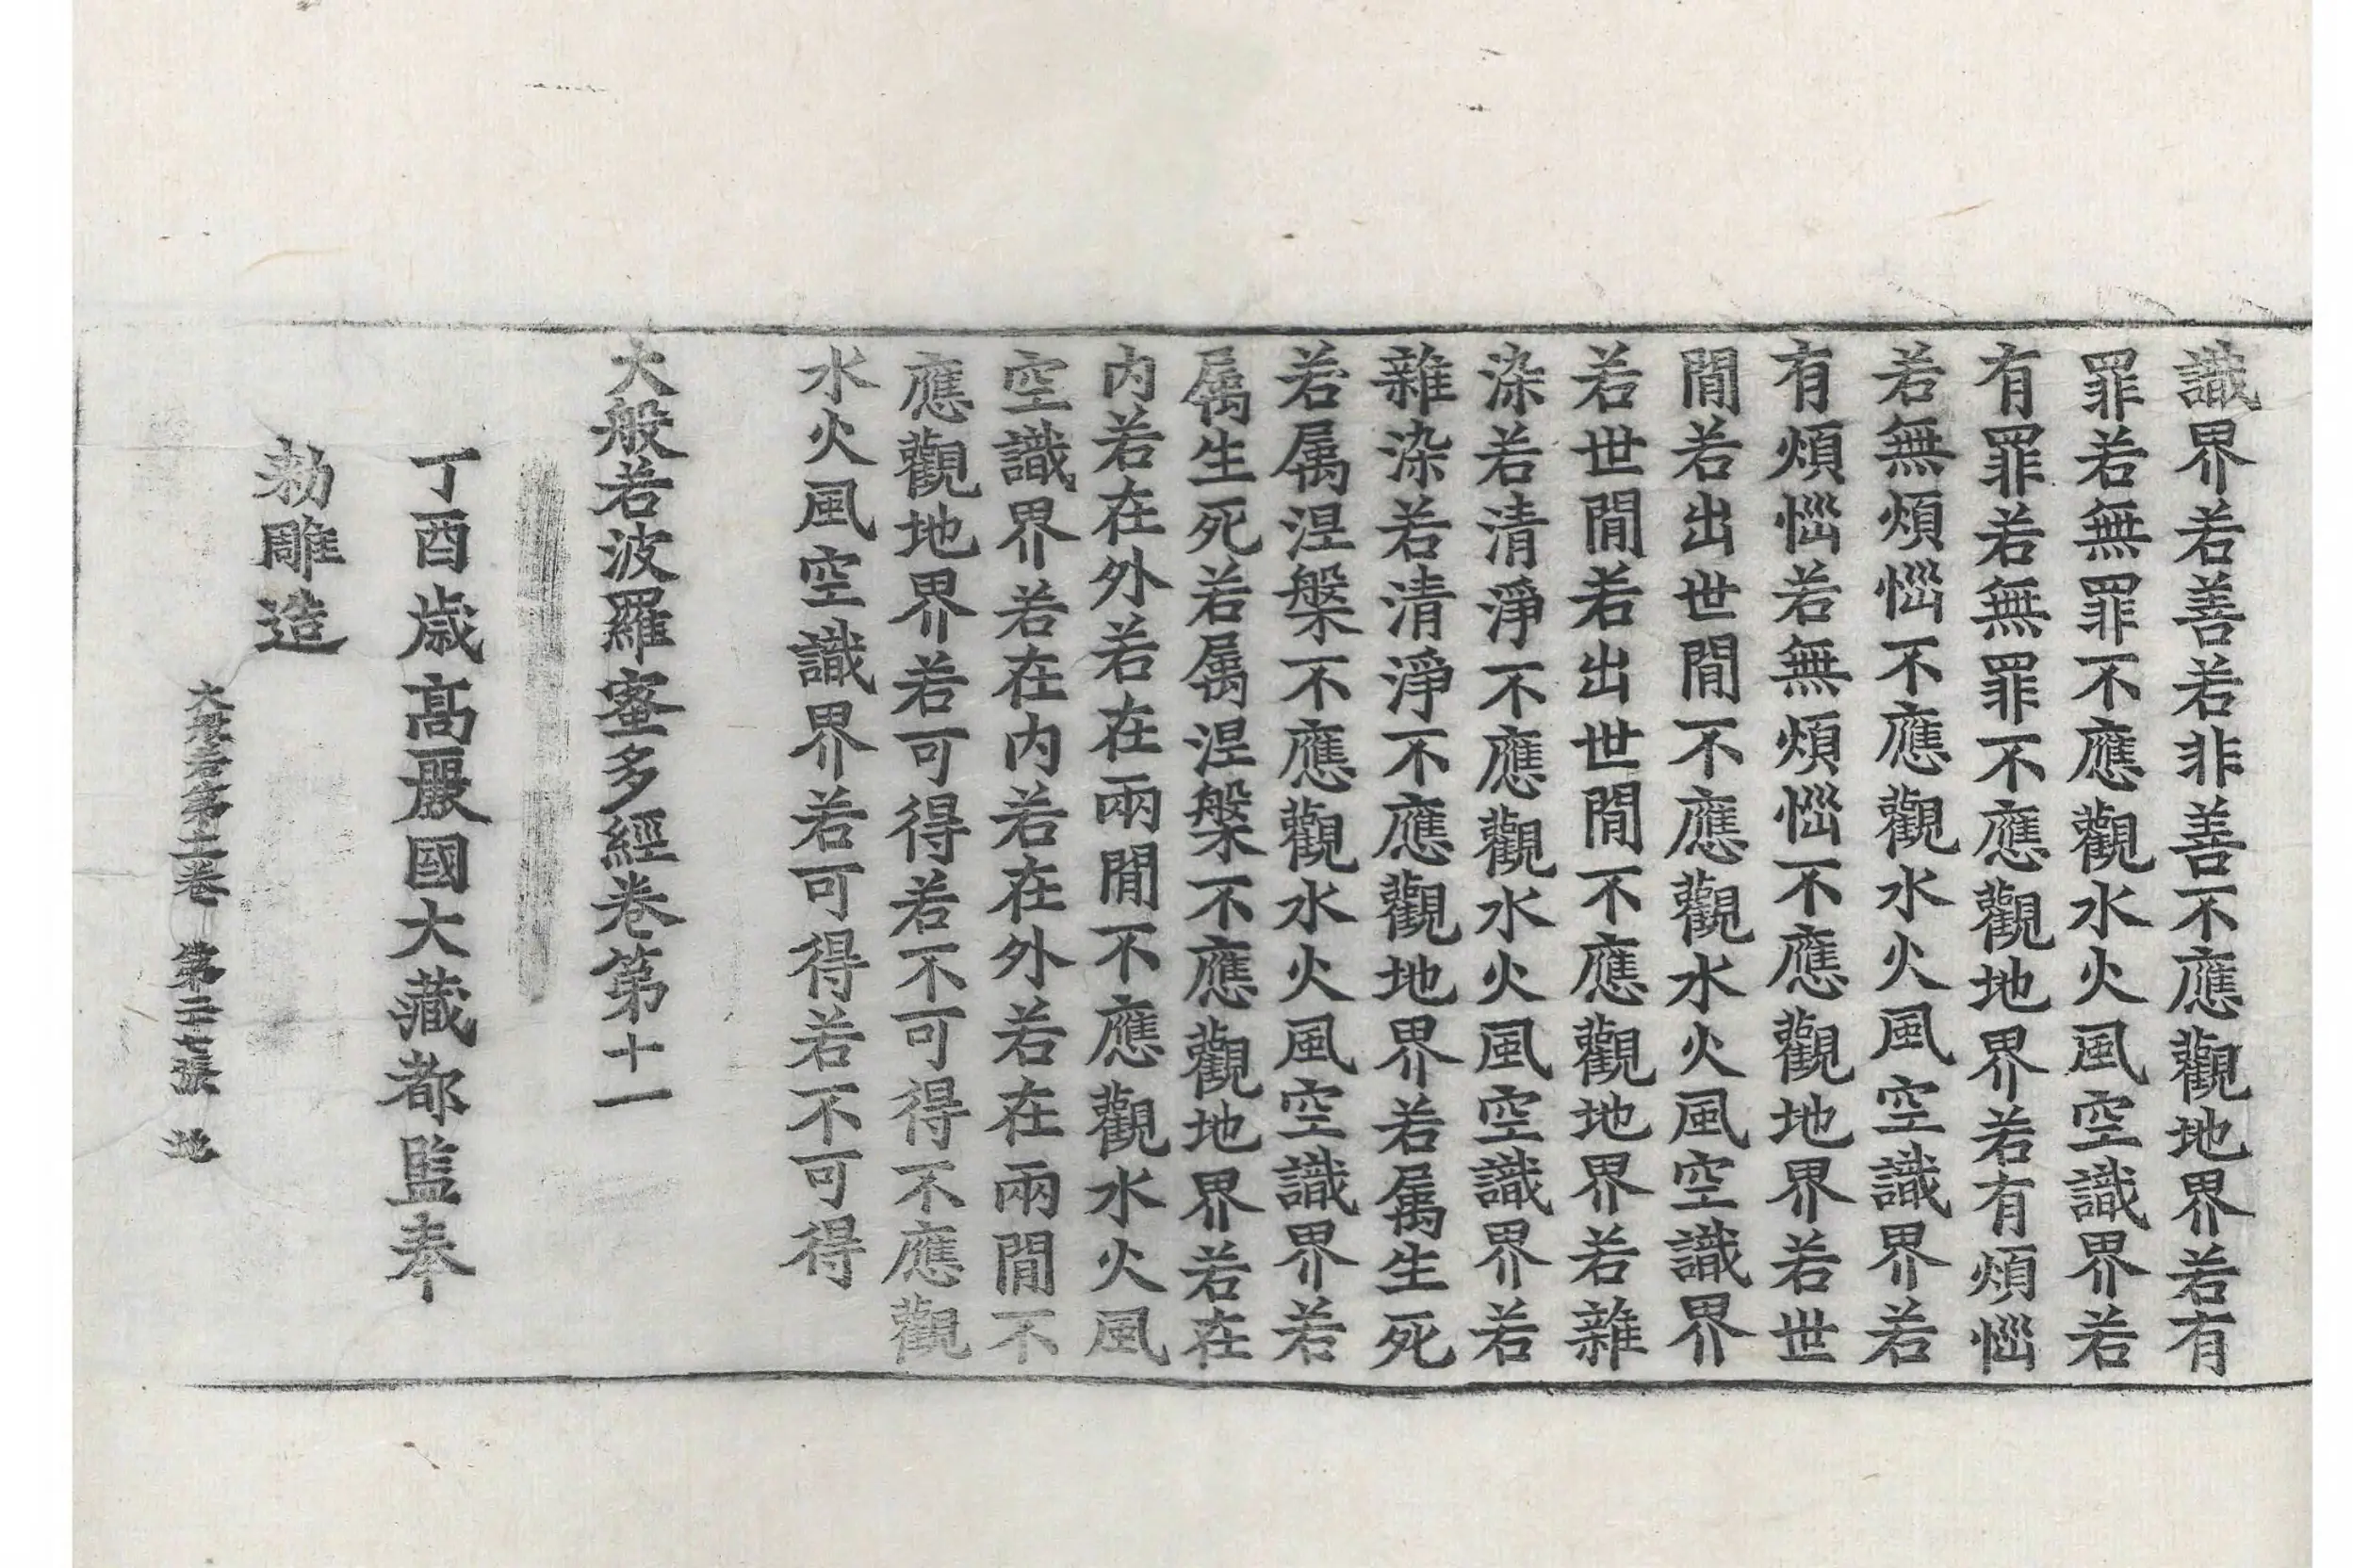 識界若善若非善不應觀地界若有
罪若無罪不應觀水火風空識界若
有罪若無罪不應觀地界若有煩惱
若無煩惱不應觀水火風空識界若
有煩惱若無煩惱不應觀地界若世
閒若出世閒不應觀水火風空識界
若世閒若出世閒不應觀地界若雜
染若清淨不應觀水火風空識界若
雜染若清淨不應觀地界若属生死
若属涅槃不應觀水火風空識界若
属生死若属涅槃不應觀地界若在
内若在外若在兩閒不應觀水火風
空識界若在内若在外若在兩閒不
應觀地界若可得若不可得不應觀
水火風空識界若可得若不可得
大般若波羅蜜多經卷第十一
丁酉歳高麗國大藏都監奉
勅雕造
大般若第十一卷 第二十七張 地